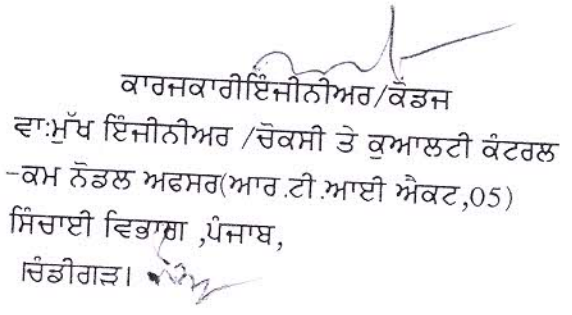 ਕਾਰਜਕਾਰੀਇੰਜੀਨੀਅਰ/ਕੰਡਜ
ਵਾ:ਮੁੱਖ ਇੰਜੀਨੀਅਰ /ਚੋਕਸੀ ਤੇ ਕੁਆਲਟੀ ਕੰਟਰਲ
-ਕਮ ਨੋਡਲ ਅਫਸਰ(ਆਰ.ਟੀ.ਆਈ ਐਕਟ,05)
ਸਿੰਚਾਈ ਵਿਭਾਗ ,ਪੰਜਾਬ,
ਚੰਡੀਗੜ।